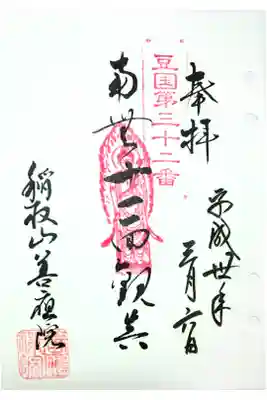 奉拝
平成卅年
三月六日
豆国第三十二番
南無十一面観音
稲取山善應院